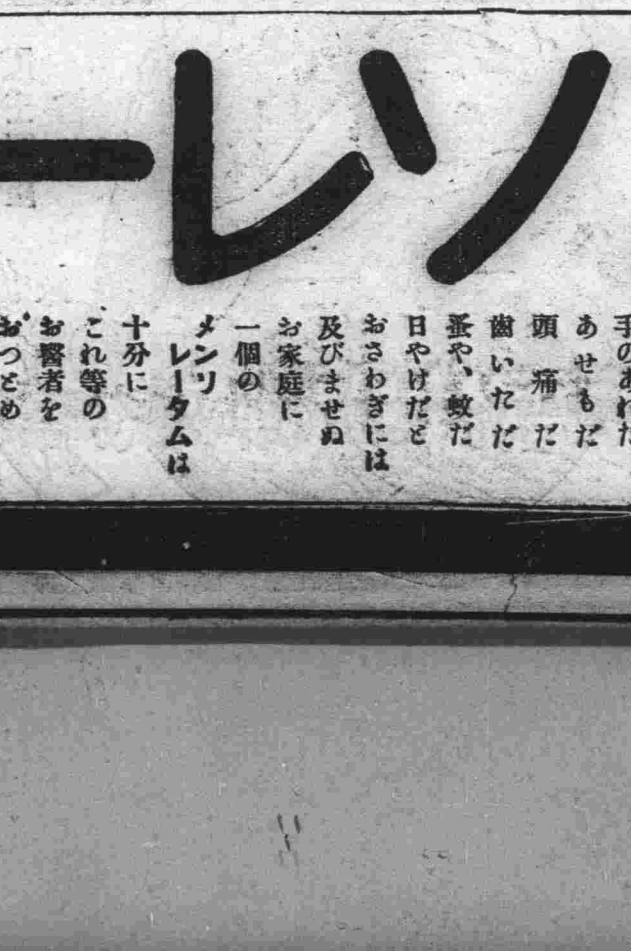 ソレー
手のあれだ
あせもだ
頭痛だ
齒いただ
蚤や、蚊だ
日やけだと
おさわぎには
及びませぬ
お家庭に
一個の
メンソ
レータムは
十分に
これ等の
お醫者を
おつとめ